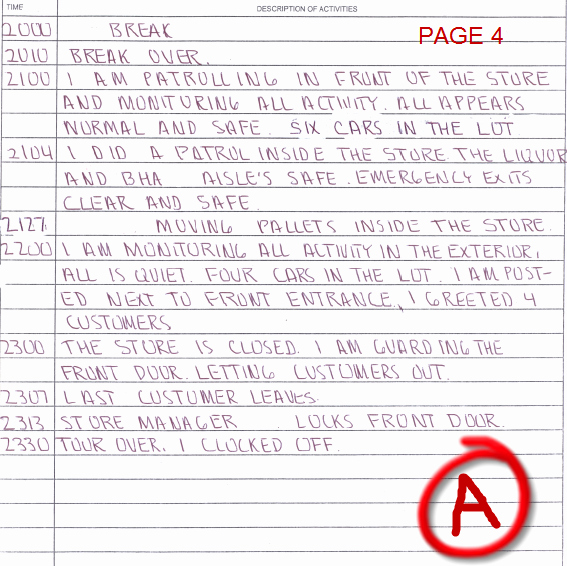 TIME DESCRIPTION OF ACTIVITIES
PAGE 4
2000 BREAK
2010 BREAK OVER.
2100 I AM PATROLLING IN FRONT OF THE STORE
AND MONITORING ALL ACTIVITY. ALL APPEARS
NORMAL AND SAFE. SIX CARS IN THE LOT
2104 I DID A PATROL INSIDE THE STORE. THE LIQUOR
AND BHA AISLE'S SAFE. EMERGENCY EXITS
CLEAR AND SAFE.
2127 MOVING PALLETS INSIDE THE STORE.
2200 I AM MONITORING ALL ACTIVITY IN THE EXTERIOR,
ALL IS QUIET. FOUR CARS IN THE LOT. I AM POST-
ED NEXT TO FRONT ENTRANCE, I GREETED 4
CUSTOMERS
2300 THE STORE IS CLOSED. I AM GUARDING THE
FRONT DOOR. LETTING CUSTOMERS OUT.
2307 LAST CUSTOMER LEAVES.
2313 STORE MANAGER LOCKS FRONT DOOR.
2330 TOUR OVER. I CLOCKED OFF.
A